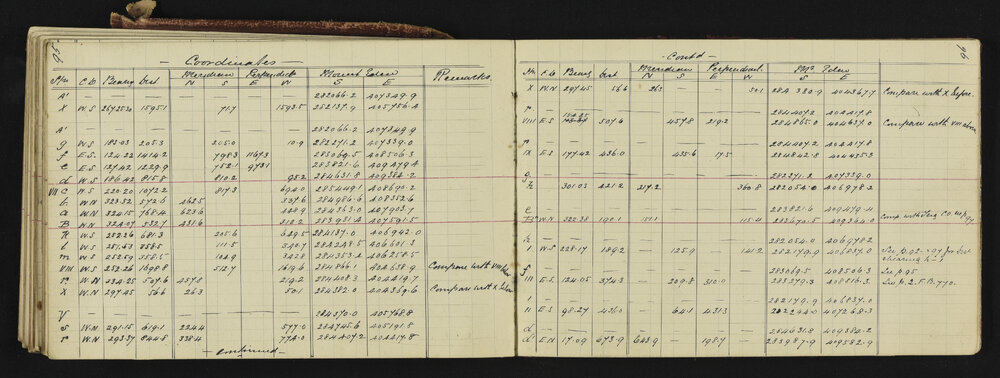 95
— Coordinates —
Stn C.O Bearing Dist Meridian Perpendicr Mount Eden Remarks
N S E W S E
A' — — — — — — 282066.2 407349.9
X W.S 267.25.30 1595.1 71.7 1593.5 282137.9 405756.4
A' — — — — — — 282066.2 407349.9
g W.S 183.03 205.3 205.0 10.9 282271.2 407339.0
f E.S 124.22 1414.2 798.3 1167.3 283069.5 408506.3
e E.S 127.42 1229.9 752.1 973.1 283821.6 409479.4
d W.S 186.42 815.8 810.2 95.2 284631.8 409384.2
VII C W.S 220.20 1072.2 817.3 694.0 285449.1 408690.2
b W.N 323.52 572.6 462.5 337.6 284986.6 408352.6
a W.N 324.15 768.4 623.6 448.9 284363.0 407903.7
B W.N 324.07 532.7 431.6 312.2 283931.4 407591.5
K W.S 252.26 681.3 205.6 649.5 284137.0 406942.0
l W.S 251.53 358.5 111.5 340.7 284248.5 406601.3
m W.S 252.59 358.5 104.9 342.8 284353.4 406258.5
VIII W.S 252.26 1698.8 512.7 1619.6 284866.1 404638.9 Compare with VIII below
r W.N 334.25 507.6 457.8 219.2 284408.3 404419.7
X W.N 297.45 56.6 26.3 50.1 284382.0 404369.6 Compare with X below
V — — — — — — 284570.0 405768.8
s W.N 291.15 619.1 224.4 577.0 284745.6 405191.8
r W.N 293.37 844.8 338.4 774.0 284407.2 404417.8
— continued —
96
— Contd —
Stn C.O Bearg Dist Meridian Perpendicl. Mt Eden
N S E W S E
X W.N 297.45 56.6 26.3 50.1 284 380.9 404367.7 Compare with X before.
r — — — — — — 284407.2 404417.8
VIII E.S 154.25 507.6 457.8 219.2 284865.0 404637.0 Compare with VIII above
r — — — — — — 284407.2 404417.8
IX E.S 177.42 436.0 435.6 17.5 284842.8 404435.3
g — — — — — — 282271.2 407339.0
h 301.03 421.2 217.2 360.8 282054.0 406978.2
e — — — — — — 283821.6 409479.4
W.N 322.38 190.1 151.1 115.4 283670.5 409364.0
h — — — — — — 282054.0 406978.2
i W.S 228.17 189.2 125.9 141.2 282179.9 406837.0
f — — — — — — 283069.5 408506.3 See p 95
III E.S 124.05 374.3 209.8 310.0 283279.3 408816.3 See p. 2. F.B. 770.
i — — — — — — 282179.9 406837.0
II E.S 98.27 436.0 64.1 431.3 282244.0 407268.3
d — — — — — — 284631.8 409384.2
d' E.N 17.09 673.9 643.9 198.7 283987.9 409582.9